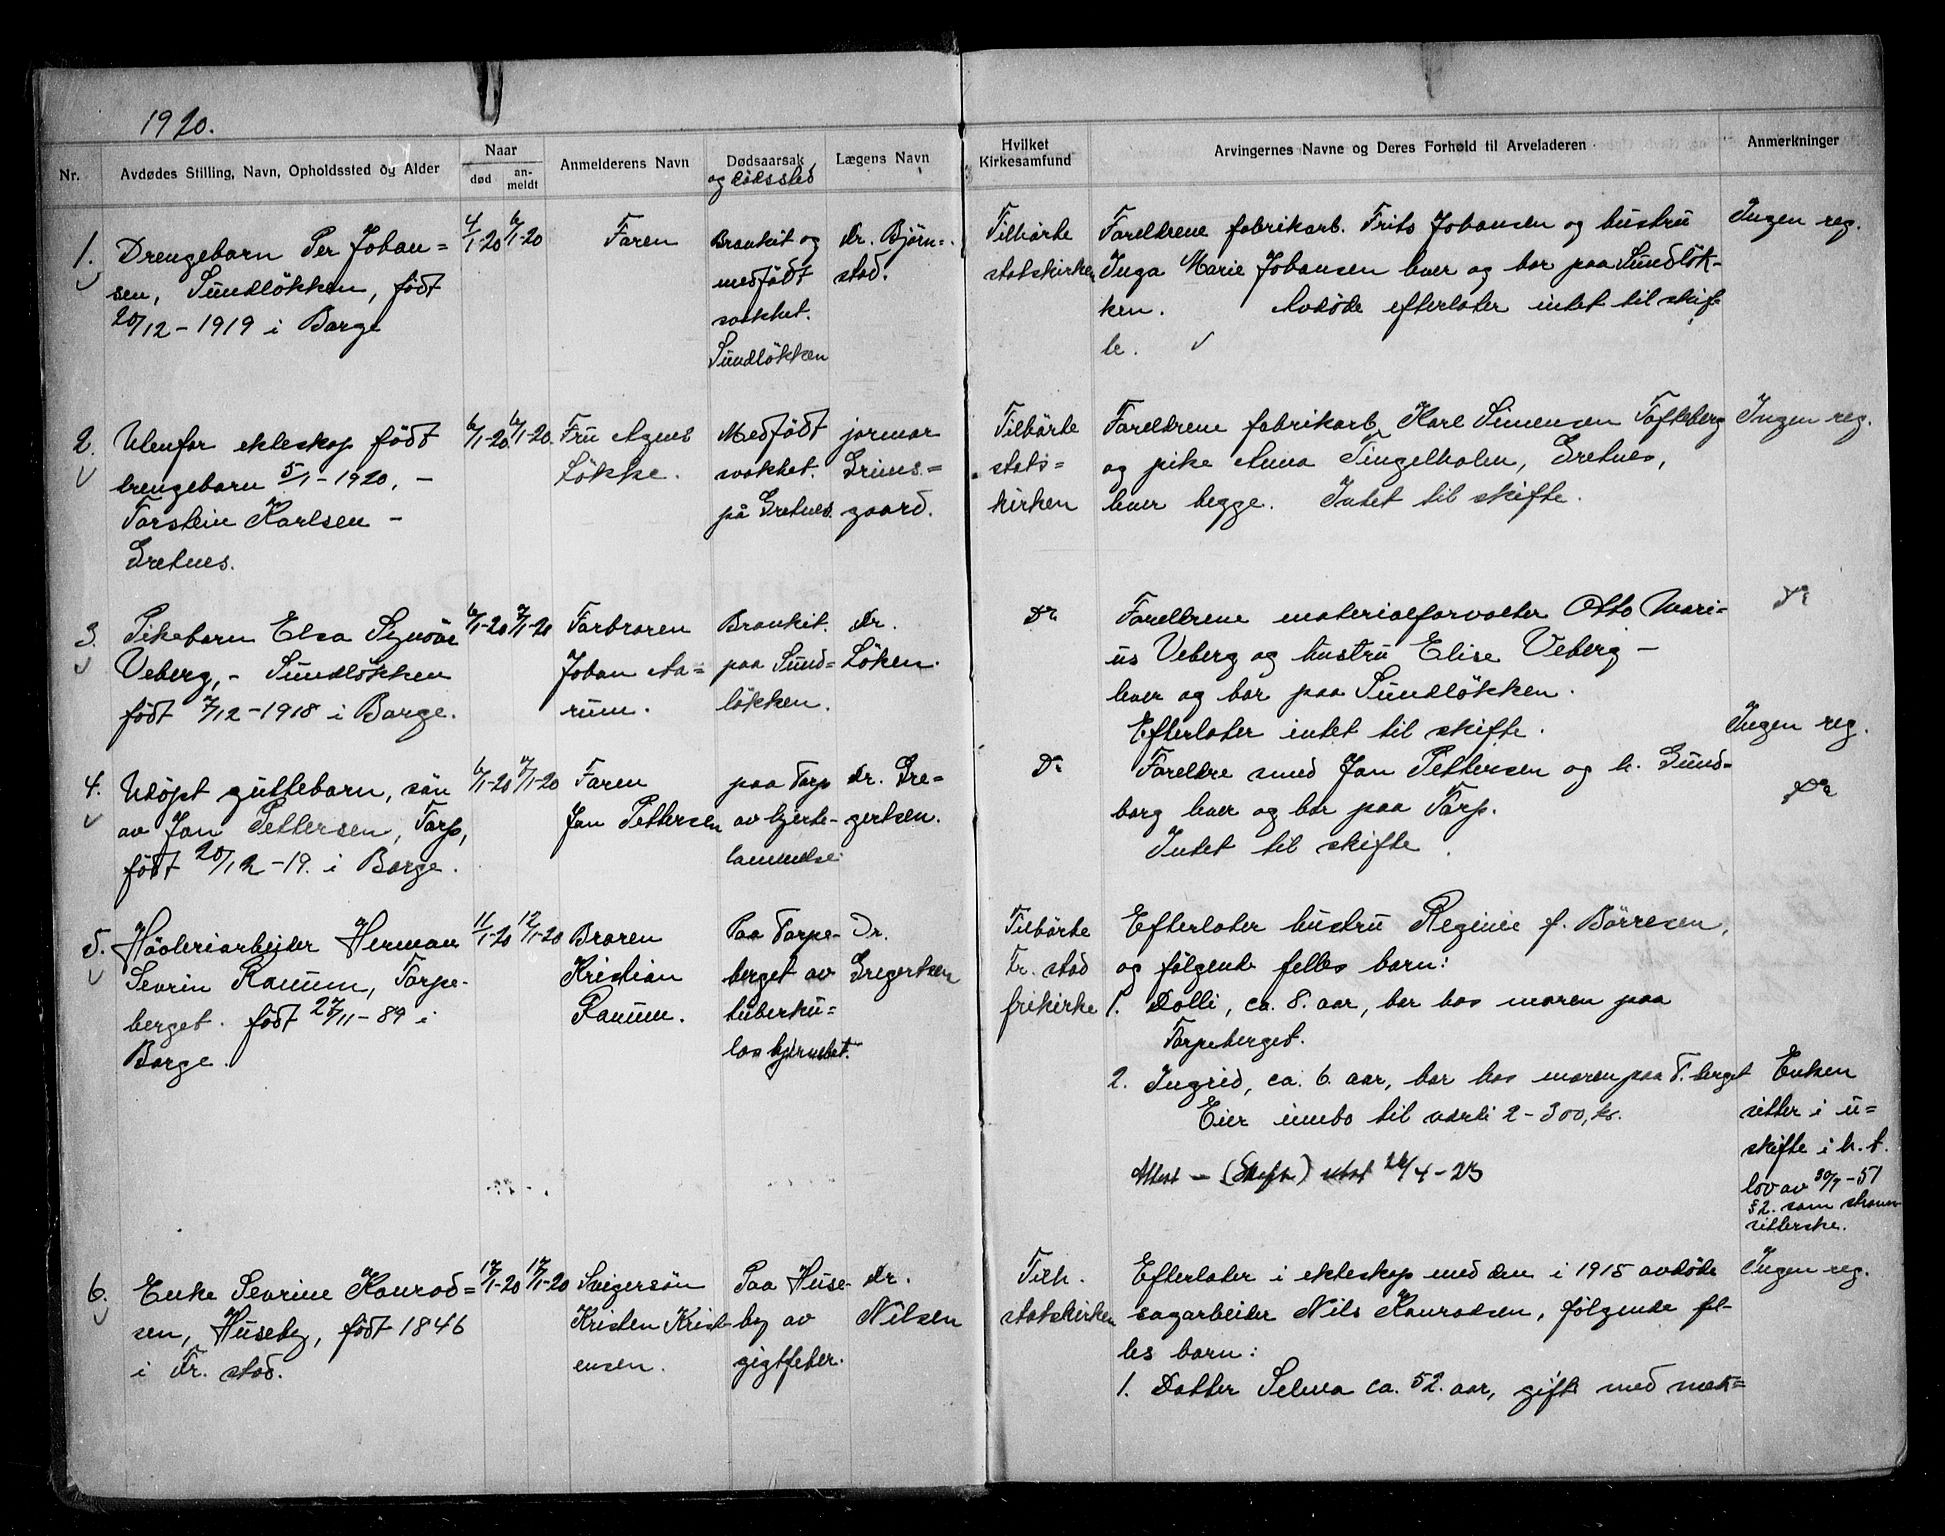 1920.
Nr.
Avdødes Stilling, Navn, Opholdssted og Alder
Naar
død
an-
meldt
Anmelderens Navn
Dødsaarsak
og dödssted
Lægens Navn
Hvilket
Kirkesamfund
Arvingernes Navne og Deres Forhold til Arveladeren
Anmerkninger
1.
Drengebarn Per Johan=
sen, Sundlökken, födt
20/12-1919 i Borge
4/1-20
6/1-20
Faren
Bronkit og
medfödt
svakhet.
Sundlökken
dr. Bjørn=
stad.
Tilhörte
statskirken
Foreldrene fabrikarb. Frits Johansen og hustru
Inga Marie Johansen lever og bor paa Sundlök-
ken. Avdøde efterlater intet til skif
te.
Ingen reg.
2.
Utenfor ekteskap födt
drengebarn 5/1-1920. -
Torstein Karlsen -
Gretnes.
6/1-20
6/1-20.
Fru Agnes
Lökke.
Medfödt
svakhet.
på Gretnes.
jormor
Grims=
gaard.
Tilhörte
stats=
kirken
Foreldrene fabrikarb. Karl Simensen Tofteberg
og pike Anna Tingelholm, Gretnes,
lever begge. Intet til skifte.
Ingen reg.
3.
Pikebarn Elsa Synöve
Veberg, - Sundlökken
födt 7/12-1918 i Borge.
6/1-20
7/1-20
Farbroren
Johan Aa-
rum.
Bronkit.
paa Sund=
lökken.
dr.
Löken.
Do
Foreldrene materialforvalter Otto Mari=
us Veberg og hustru Elise Veberg -
lever og bor paa Sundlökken.
Efterlater intet til skifte.
Do
Ingen reg.
4.
Udöpt guttebarn, sön
av Jan Pettersen, Torp,
födt 20/12-19. i Borge.
6/1-20
7/1-20
Faren
Jan Pettersen
paa Torp
av hjerte-
lammelse
dr. Gre=
gertsen.
Do
Foreldre smed Jan Pettersen og h. Gund=
borg lever og bor paa Torp.
Intet til skifte.
Do
5.
Hövleriarbeider Herman
Sevrin Ranum, Torpe-
berget. födt 27/11-89 i
Borge.
11/1-20
12/1-20
Broren
Kristian
Ranum.
Paa Torpe-
berget av
tuberku=
los hjernebet.
Dr.
Gregertsen
Tilhörte
Fr. stad
frikirke
Efterlater hustru Reginie f. Börresen,
og fölgende felles barn:
1. Dolli, ca. 8. aar, bor hos moren paa
Torpeberget.
2. Ingrid, ca. 6. aar, bor hos moren paa T. berget
Eier innbo til værdi 2-300, kr.
Attest - (Skifte) utst 26/4-23
Enken
sitter i u=
skifte i h. t.
lov av 30/7-51
§2. som
sitterske.
6.
Enke Sevrine Konrad=
sen, Huseby, födt 1846
i Fr. stad.
17/1-20
17/1-20
Svigersön
Kristen Krist-
ensen.
Paa Huse-
by av
gigtfeber.
dr.
Nilsen
Tilh.
statskirken
Efterlater i ekteskap med den i 1915 avdøde
sagarbeider Nils Konradsen, følgende fel-
les barn:
1. Datter Selma ca. 52. aar, gift med mek=
Ingen reg.